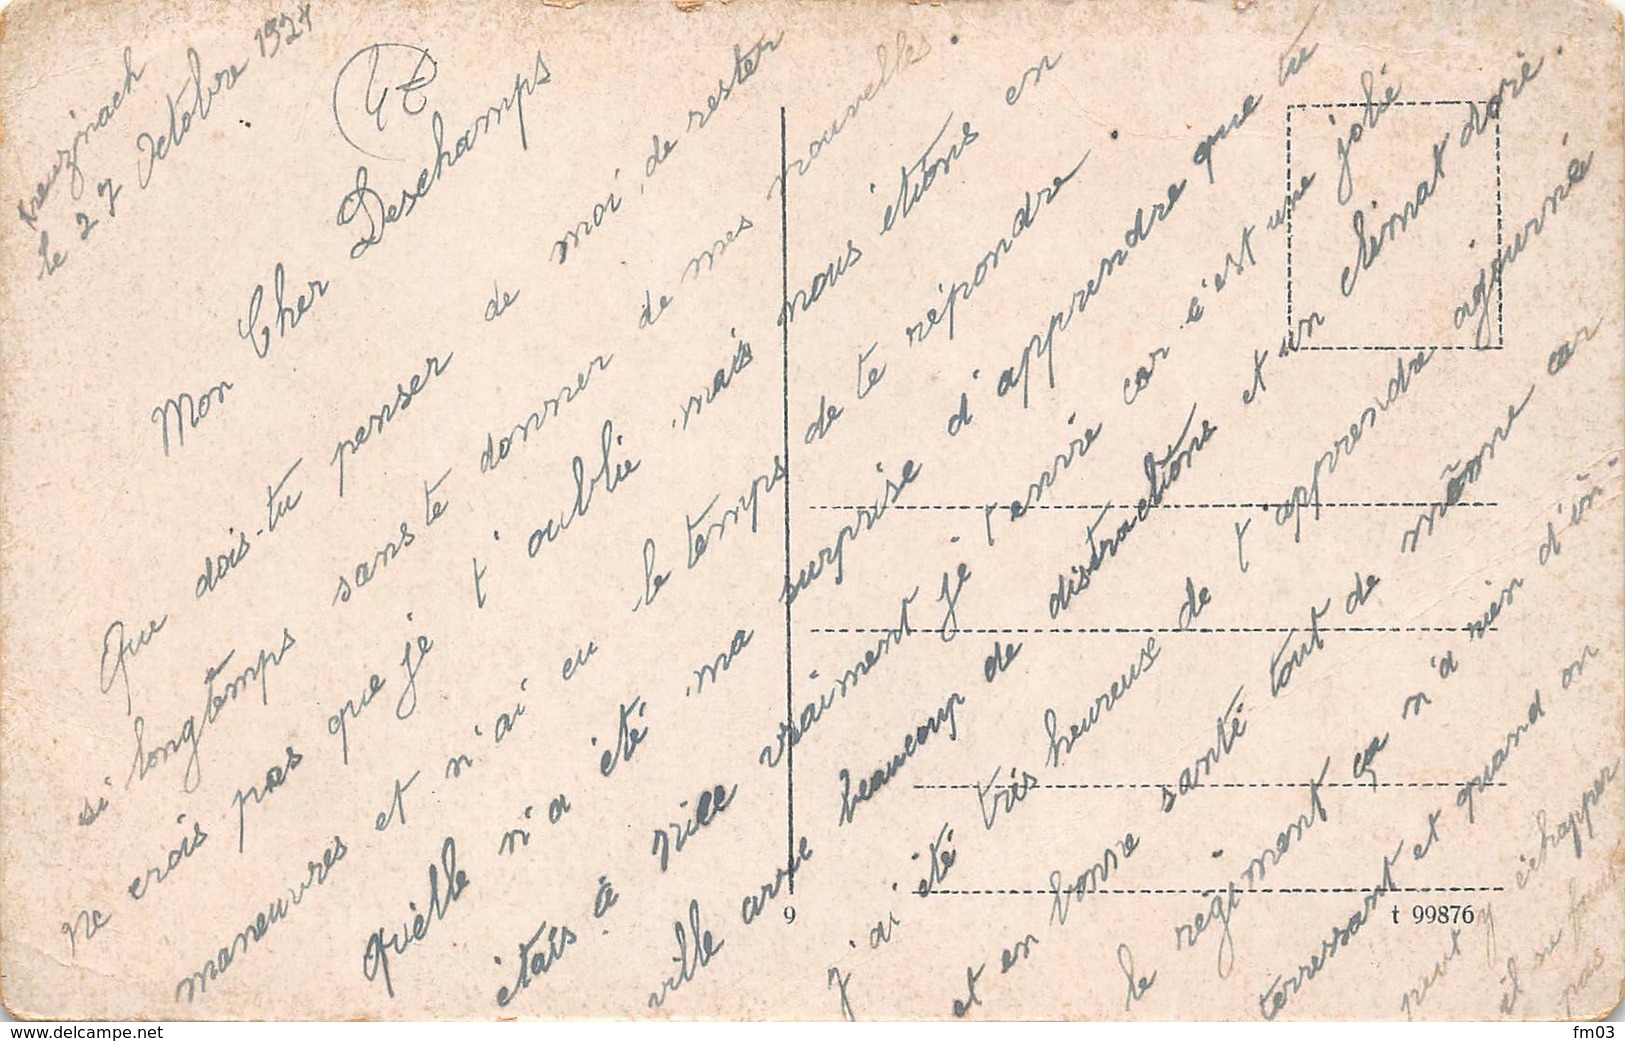 Kreuznach
le 27 Octobre 1924
Mon Cher Deschamps
Que dois-tu penser de moi, de rester
si longtemps sans te donner de mes nouvelles.
Ne crois pas que je t'oublie, mais nous étions en
maneuvres et n'ai eu le temps de te répondre.
Quèlle n'a été ma surprise d'apprendre que tu
étais à Nice vraiment je t'envie car c'est une jolie
ville avec beaucoup de distractions et un climat doré.
J'ai été très heureuse de t'apprendre ajourné
et en bonne santé tout de même car
le régiment ça n'a rien d'in-
terressant et quand on
peut y échapper
il ne faut
pas
9
t 99876
www.delcampe.net
fm03